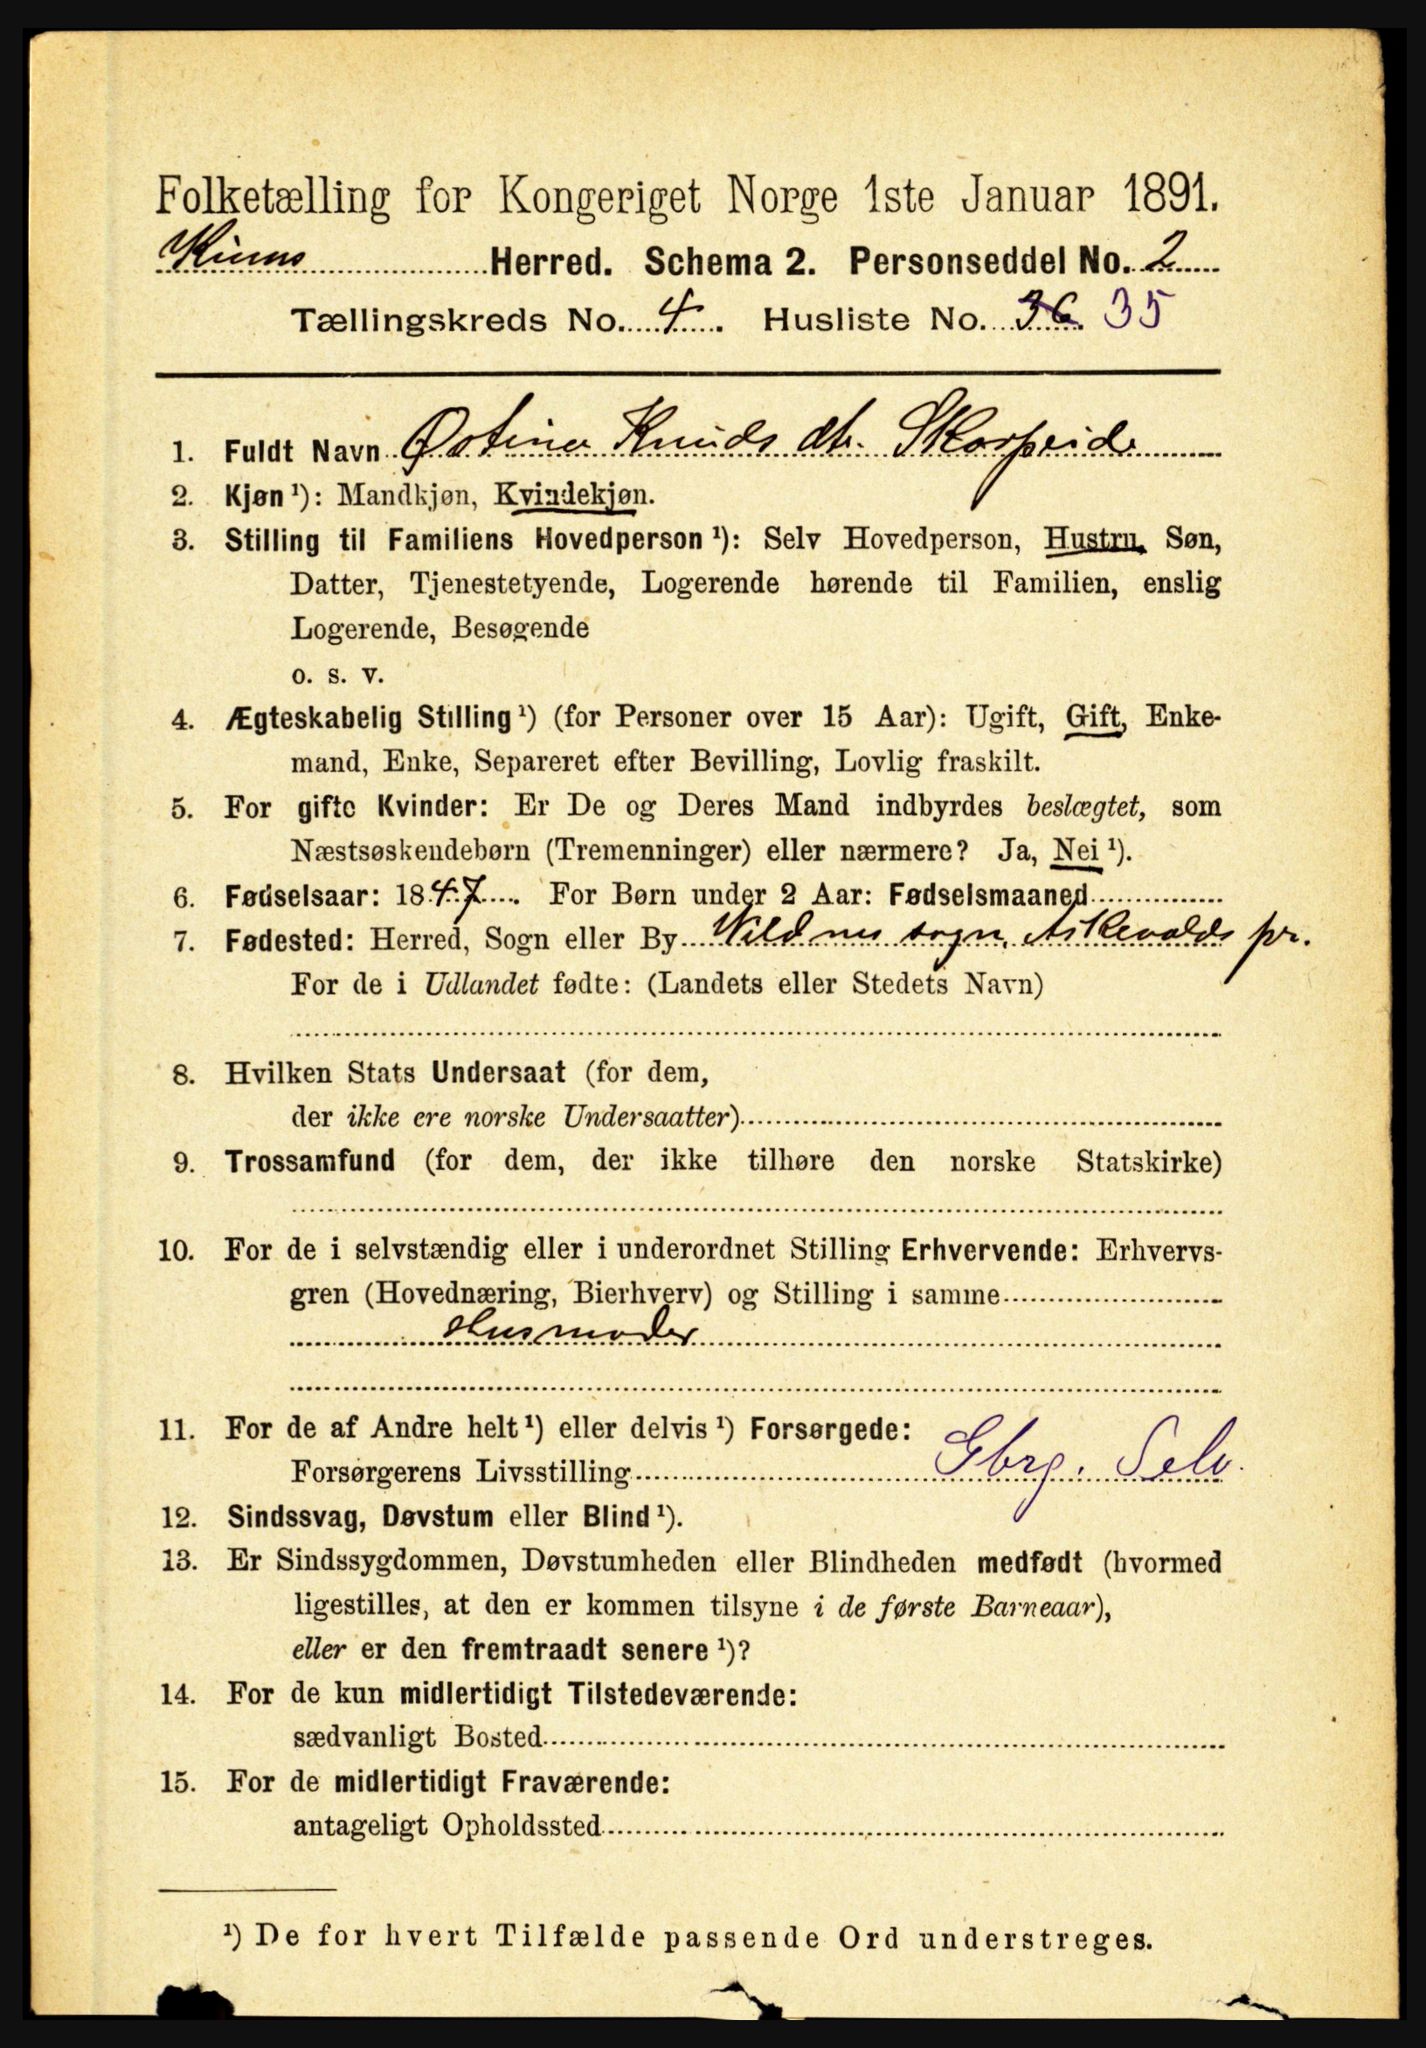 Folketælling for Kongeriget Norge 1ste Januar 1891.
Kinns Herred. Schema 2. Personseddel No. 2
Tællingskreds No. 4. Husliste No. 36. 35
1. Fuldt Navn Østina Knuds dtr. Skorpeide
2. Kjøn ¹): Mandkjøn, Kvindekjøn.
3. Stilling til Familiens Hovedperson ¹): Selv Hovedperson, Hustru, Søn,
Datter, Tjenestetyende, Logerende hørende til Familien, enslig
Logerende, Besøgende
o. s. v.
4. Ægteskabelig Stilling ¹) (for Personer over 15 Aar): Ugift, Gift, Enke-
mand, Enke, Separeret efter Bevilling, Lovlig fraskilt.
5. For gifte Kvinder: Er De og Deres Mand indbyrdes beslægtet, som
Næstsøskendebørn (Tremenninger) eller nærmere? Ja, Nei ¹).
6. Fødselsaar: 1847. For Børn under 2 Aar: Fødselsmaaned
7. Fødested: Herred, Sogn eller By Vildnes sogn, Askevolds pr.
For de i Udlandet fødte: (Landets eller Stedets Navn)
8. Hvilken Stats Undersaat (for dem,
der ikke ere norske Undersaatter)
9. Trossamfund (for dem, der ikke tilhøre den norske Statskirke)
10. For de i selvstændig eller i underordnet Stilling Erhvervende: Erhvervs-
gren (Hovednæring, Bierhverv) og Stilling i samme
Husmoder
11. For de af Andre helt ¹) eller delvis ¹) Forsørgede:
Forsørgerens Livsstilling Gbrg. Selv.
12. Sindssvag, Døvstum eller Blind ¹).
13. Er Sindssygdommen, Døvstumheden eller Blindheden medfødt (hvormed
ligestilles, at den er kommen tilsyne i de første Barneaar),
eller er den fremtraadt senere ¹)?
14. For de kun midlertidigt Tilstedeværende:
sædvanligt Bosted
15. For de midlertidigt Fraværende:
antageligt Opholdssted
¹) De for hvert Tilfælde passende Ord understreges.